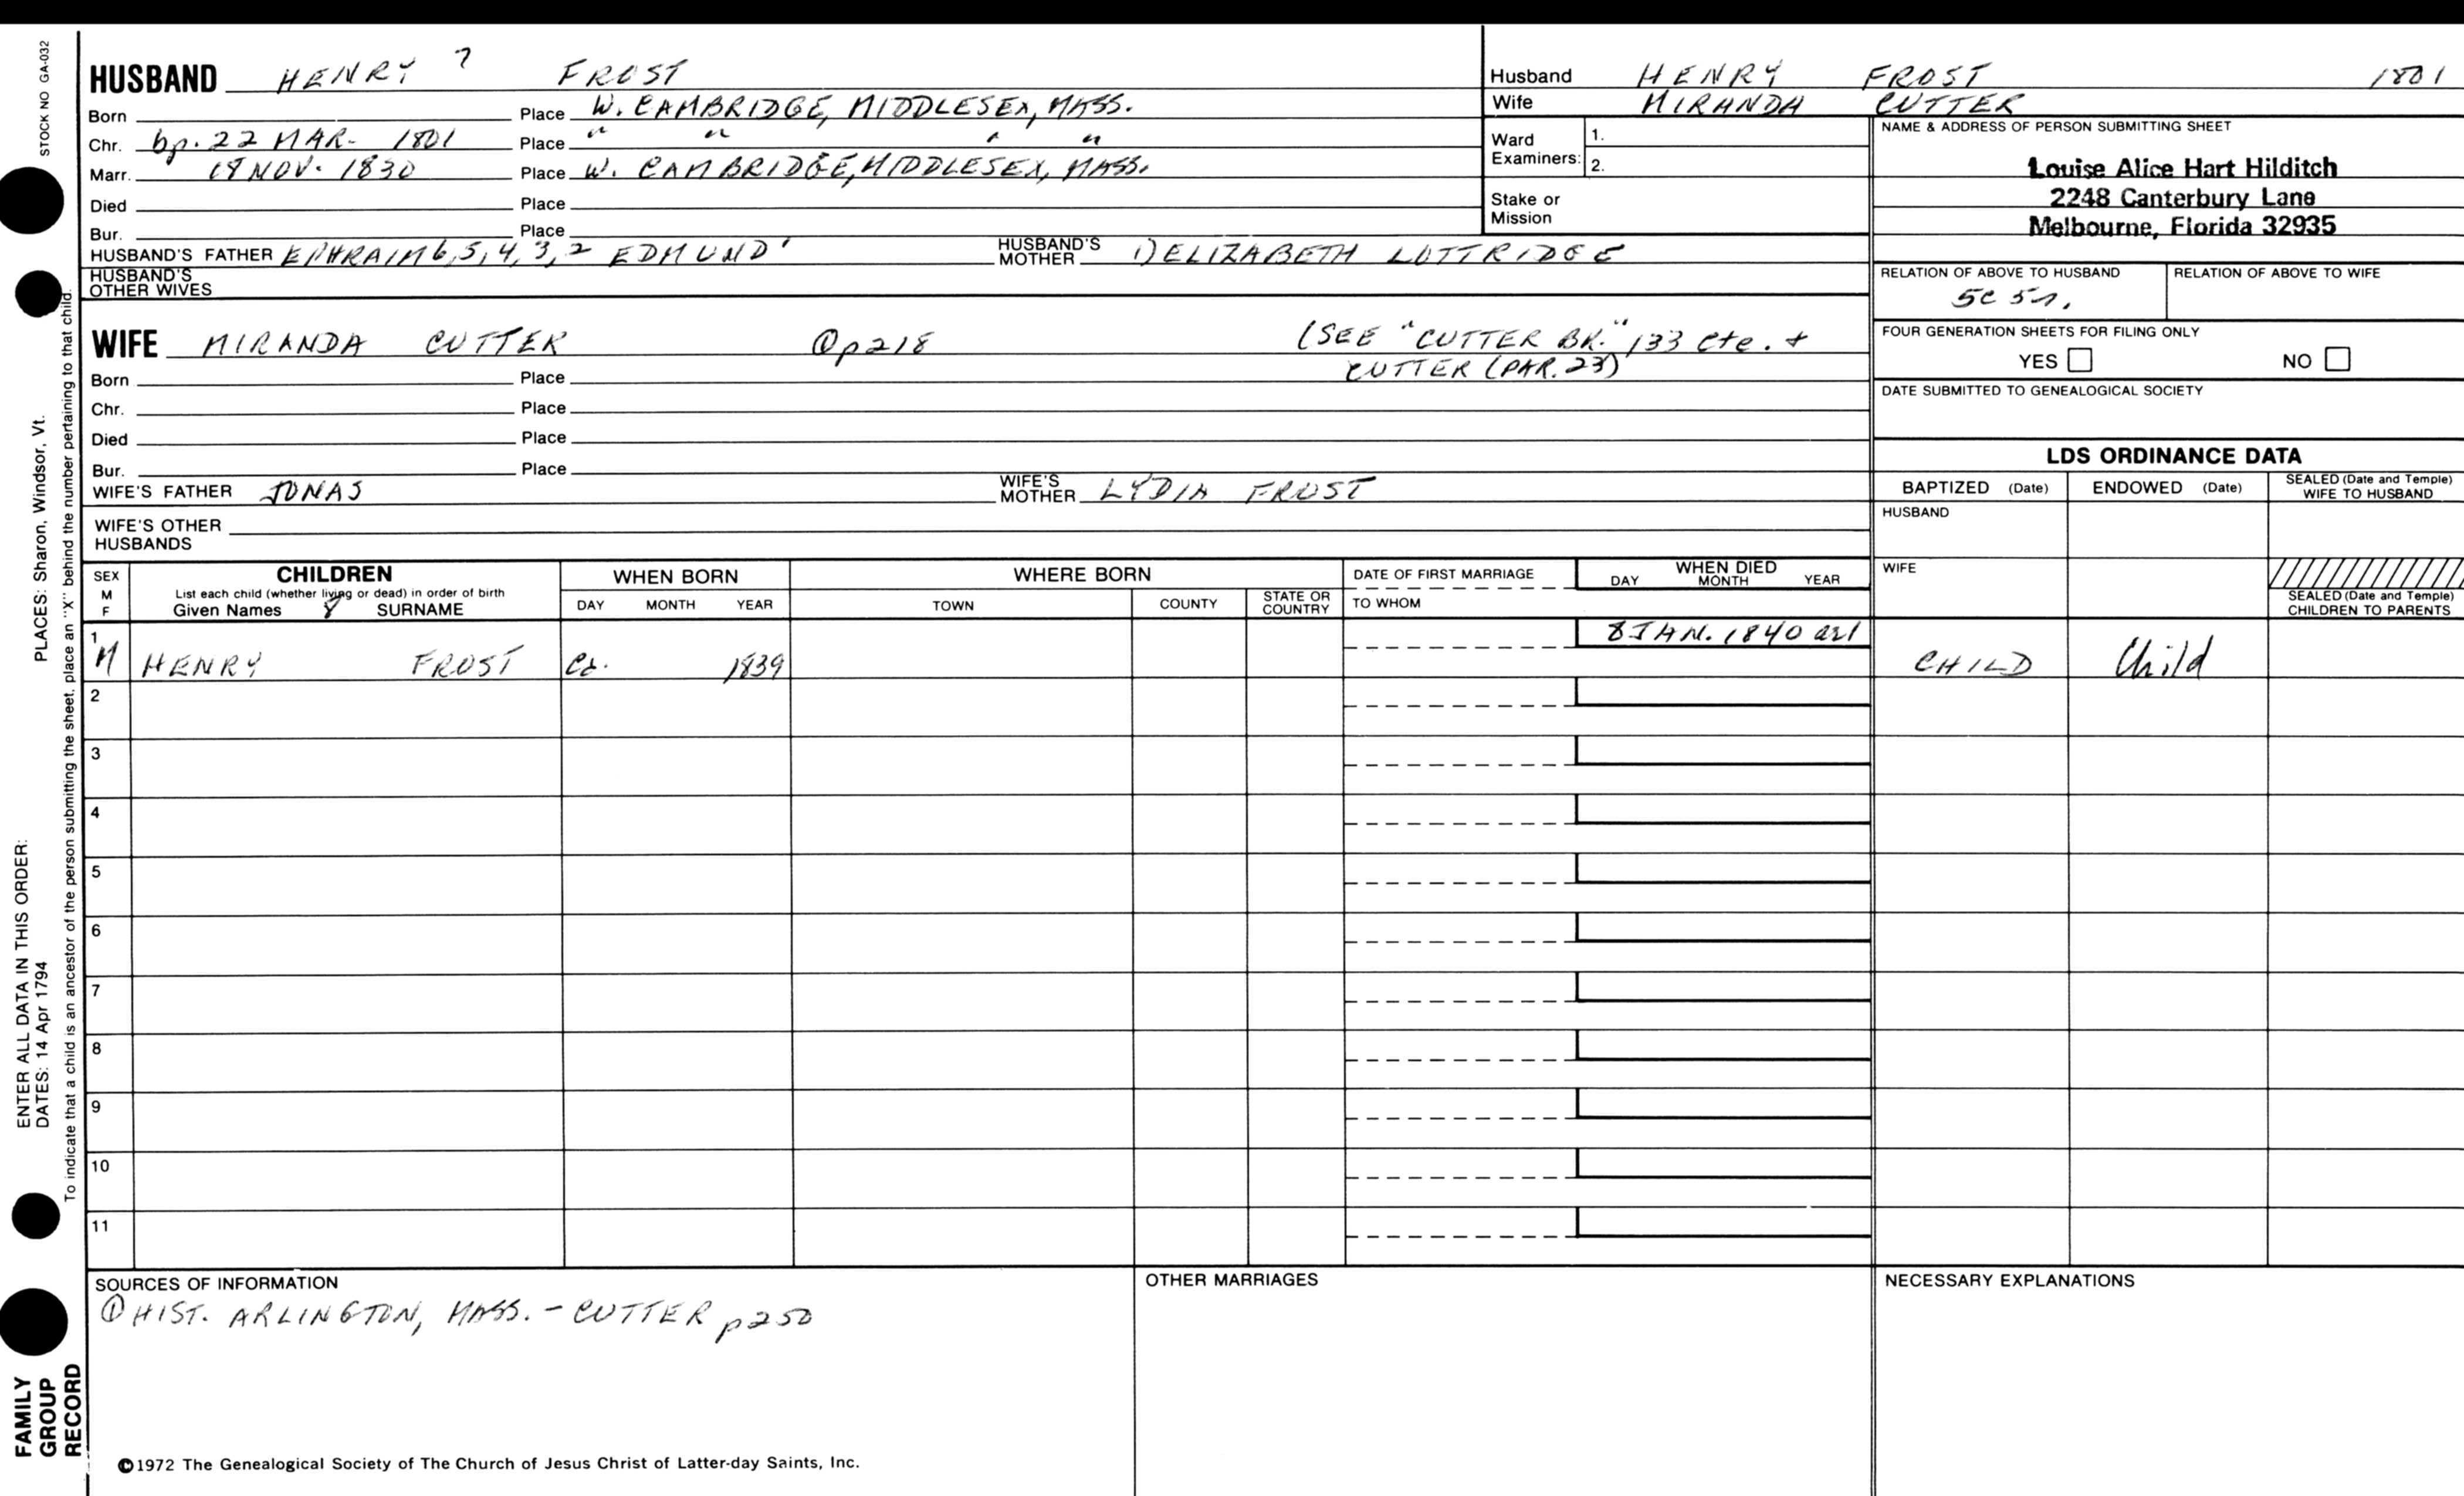 STOCK NO GA-032
HUSBAND HENRY 7 FROST
Born Place W. CAMBRIDGE, MIDDLESEX, MASS.
Chr. bp. 22 MAR. 1801 Place " " " "
Marr. 18 NOV. 1830 Place W. CAMBRIDGE, MIDDLESEX, MASS.
Died Place
Bur. Place
HUSBAND'S FATHER EPHRAIM 6, 5, 4, 3, 2 EDMUND 1 HUSBAND'S MOTHER 1) ELIZABETH LUTTRIDGE
HUSBAND'S OTHER WIVES
Husband HENRY FROST 1801
Wife MIRANDA CUTTER
Ward Examiners: 1.
2.
Stake or Mission
NAME & ADDRESS OF PERSON SUBMITTING SHEET
Louise Alice Hart Hilditch
2248 Canterbury Lane
Melbourne, Florida 32935
RELATION OF ABOVE TO HUSBAND RELATION OF ABOVE TO WIFE
5C 5r.
FOUR GENERATION SHEETS FOR FILING ONLY
YES NO
DATE SUBMITTED TO GENEALOGICAL SOCIETY
WIFE MIRANDA CUTTER ① p218 (SEE "CUTTER BK." 133 etc. +
CUTTER (PAR. 23)
Born Place
Chr. Place
Died Place
Bur. Place
WIFE'S FATHER JONAS WIFE'S MOTHER LYDIA FROST
WIFE'S OTHER HUSBANDS
LDS ORDINANCE DATA
BAPTIZED (Date) ENDOWED (Date) SEALED (Date and Temple) WIFE TO HUSBAND
HUSBAND
WIFE
SEALED (Date and Temple) CHILDREN TO PARENTS
SEX M F
CHILDREN
List each child (whether living or dead) in order of birth
Given Names 8 SURNAME
WHEN BORN
DAY MONTH YEAR
WHERE BORN
TOWN COUNTY STATE OR COUNTRY
DATE OF FIRST MARRIAGE
TO WHOM
WHEN DIED
DAY MONTH YEAR
1 M HENRY FROST Ca. 1839 8 JAN. 1840 ae 1 CHILD Child
2
3
4
5
6
7
8
9
10
11
SOURCES OF INFORMATION
① HIST. ARLINGTON, MASS. - CUTTER p250
OTHER MARRIAGES
NECESSARY EXPLANATIONS
©1972 The Genealogical Society of The Church of Jesus Christ of Latter-day Saints, Inc.
FAMILY
GROUP
RECORD
ENTER ALL DATA IN THIS ORDER:
DATES: 14 Apr 1794 PLACES: Sharon, Windsor, Vt.
To indicate that a child is an ancestor of the person submitting the sheet, place an "X" behind the number pertaining to that child.